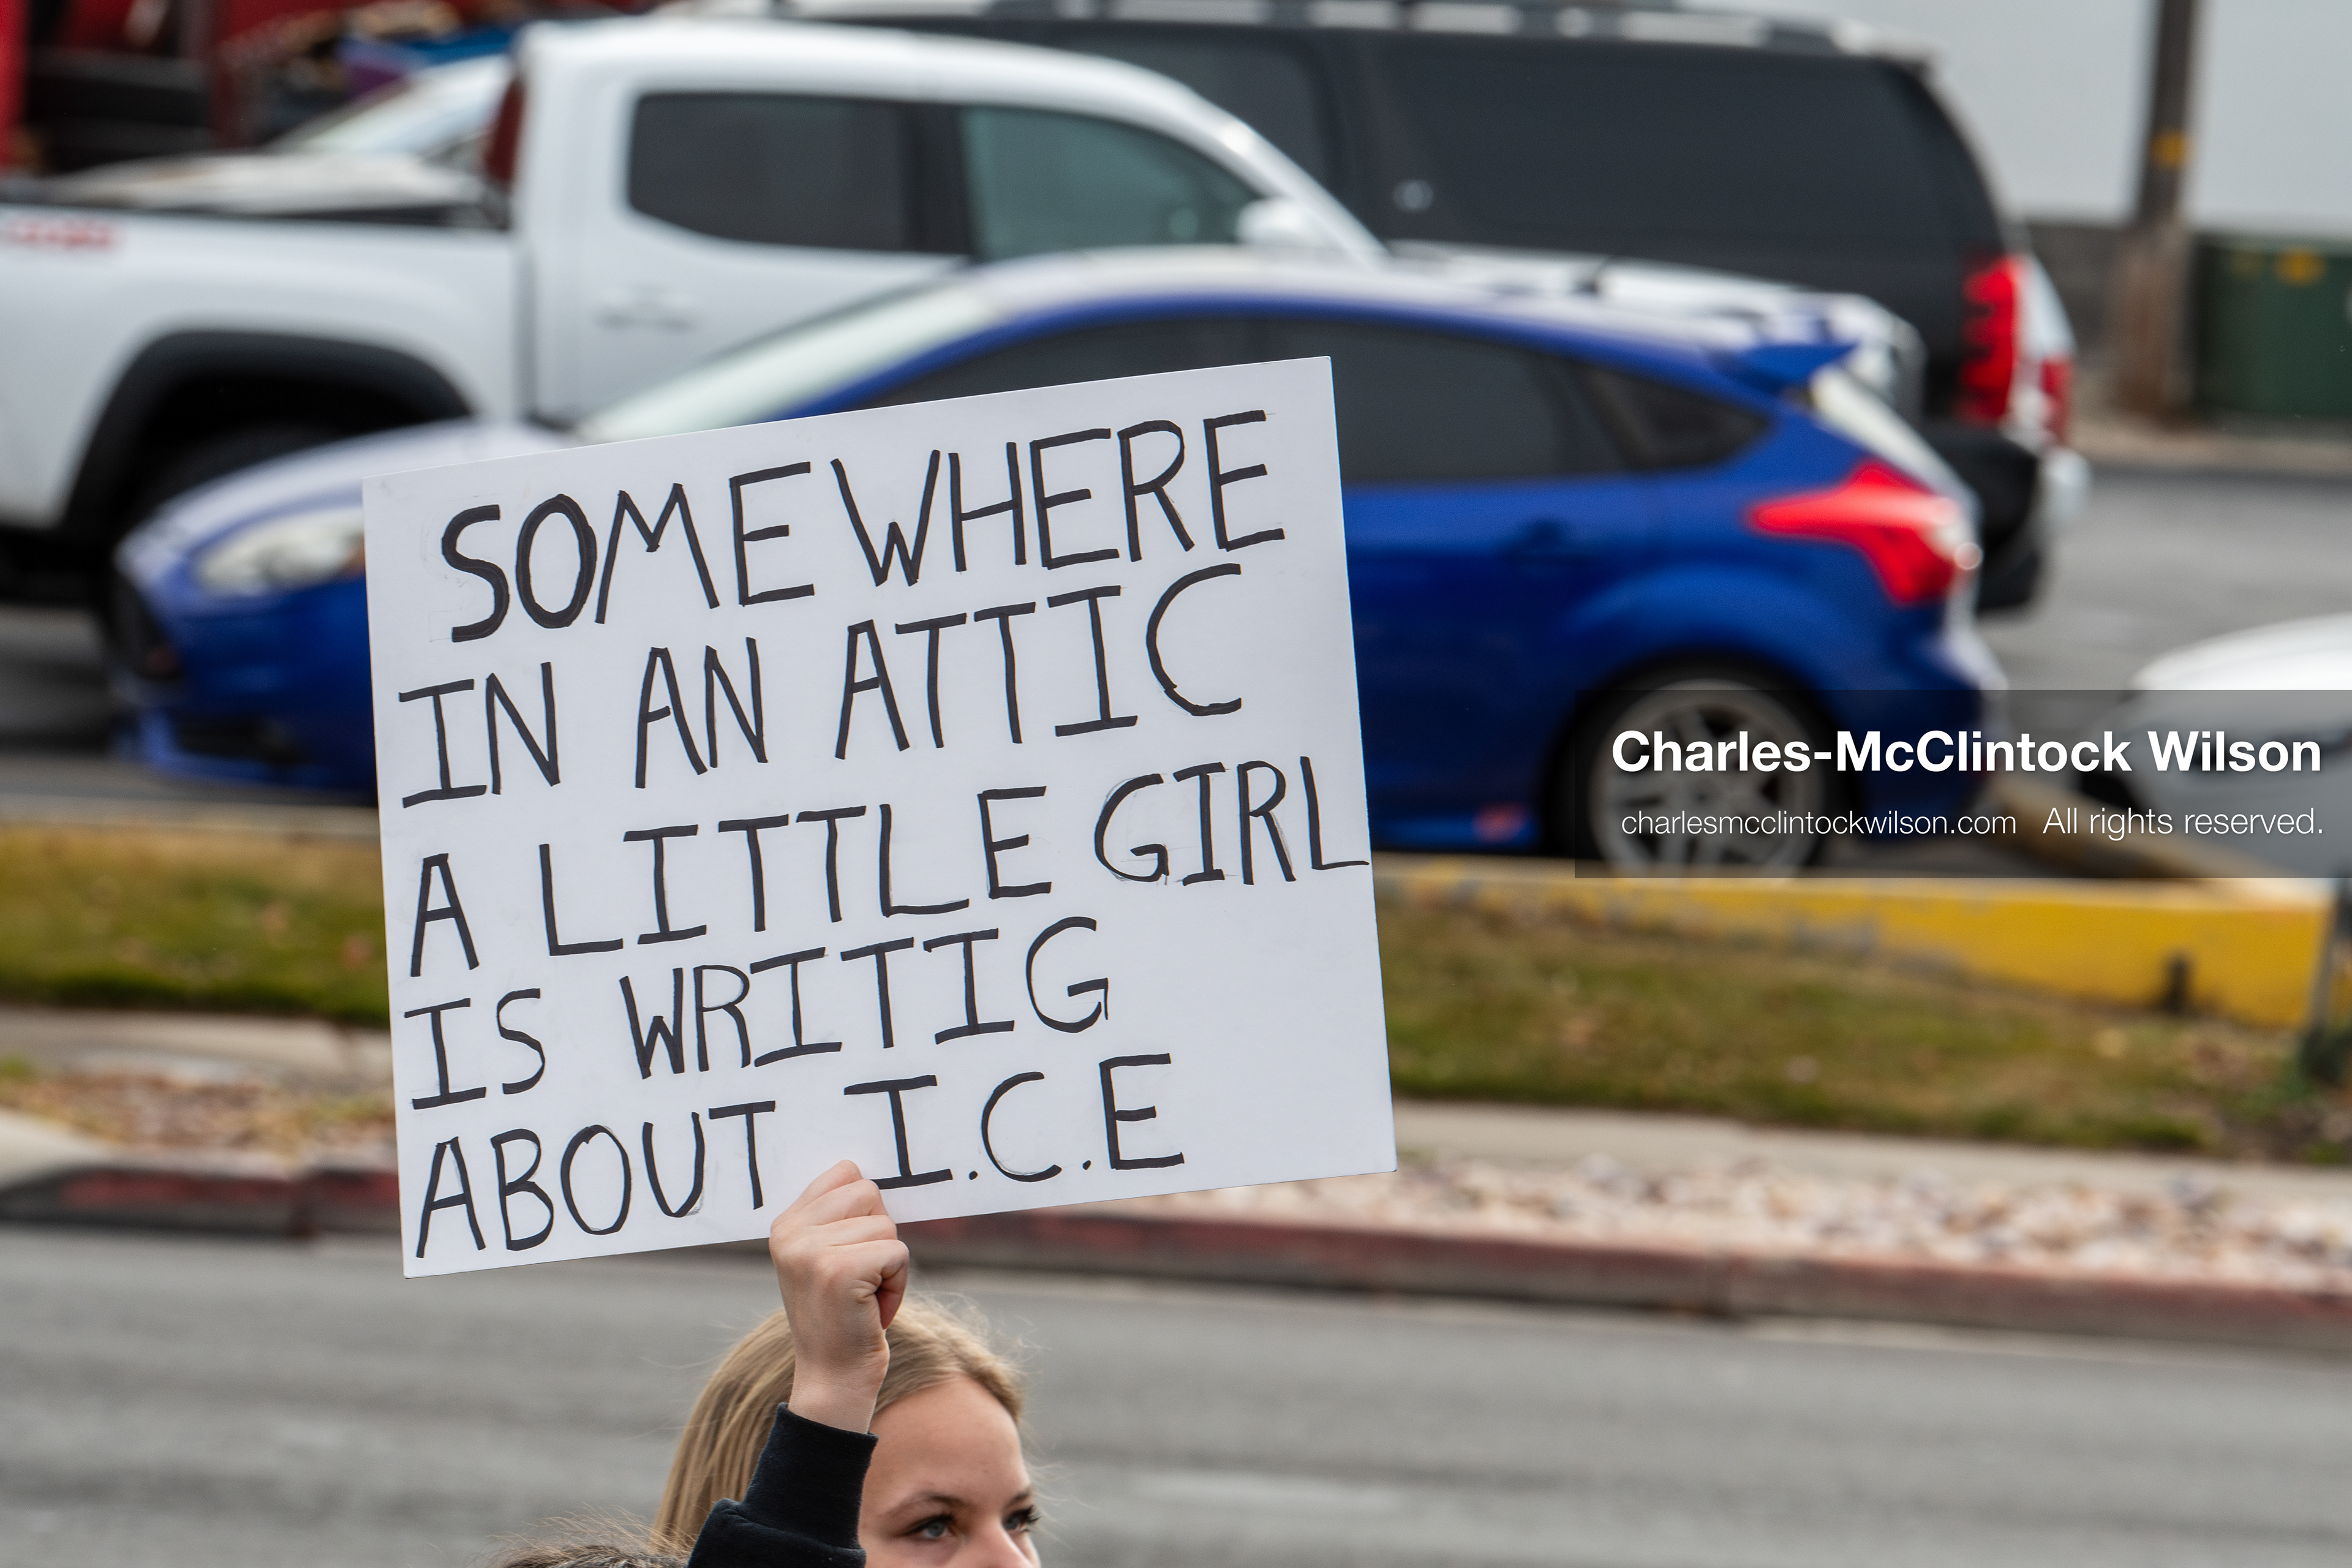 SOMEWHERE
IN AN ATTIC
A LITTLE GIRL
IS WRITIG
ABOUT I.C.E
Charles-McClintock Wilson
charlesmcclintockwilson.com All rights reserved.